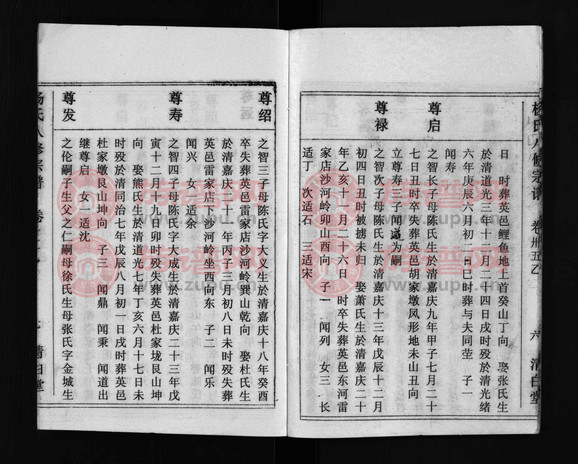 楊氏八修宗譜 卷卅五乙 六 清白堂
日 時葬英邑鲤鱼地上首癸山丁向 娶张氏生
於清道光三年十一月二十四日戌时殁於清光绪
六年庚辰六月初二日巳时葬与夫同茔 子一
闻寿
尊启
之智长子母陈氏生於清嘉庆九年甲子七月二十
七日丑时卒失葬英邑胡家墩凤形地未山丑向
立尊寿三子闻道为嗣
尊禄
之智次子母陈氏生於清嘉庆十三年戊辰十二月
初四日丑时被掳未归 娶萧氏生於清嘉庆二十
年乙亥十一月二十六日 时卒失葬英邑东河雷
家店沙河岭卯山酉向 子一 闻列 女三 长
适丁 次适石 三适宋
尊绍
之智三子母陈氏字大义生於清嘉庆十八年癸酉
卒失葬英邑雷家店沙河岭巽山乾向 娶杜氏生
於清嘉庆二十一年丙子三月初八日未时殁失葬
英邑雷家店下沙河岭坐西向东 子二 闻乐
闻兴 女一适余
尊寿
之智四子母陈氏字大成生於清嘉庆二十三年戊
寅十二月十九日卯时殁失葬英邑杜家垅艮山坤
向 娶熊氏生於清道光七年丁亥六月十七日未
时殁於清同治七年戊辰八月初一日戌时葬英邑
杜家墩艮山坤向 子三 闻鼎 闻秉 闻道出
继尊启 女一适沈
尊发
之伦嗣子生父之仁嗣母徐氏生母张氏字金城生
清白堂